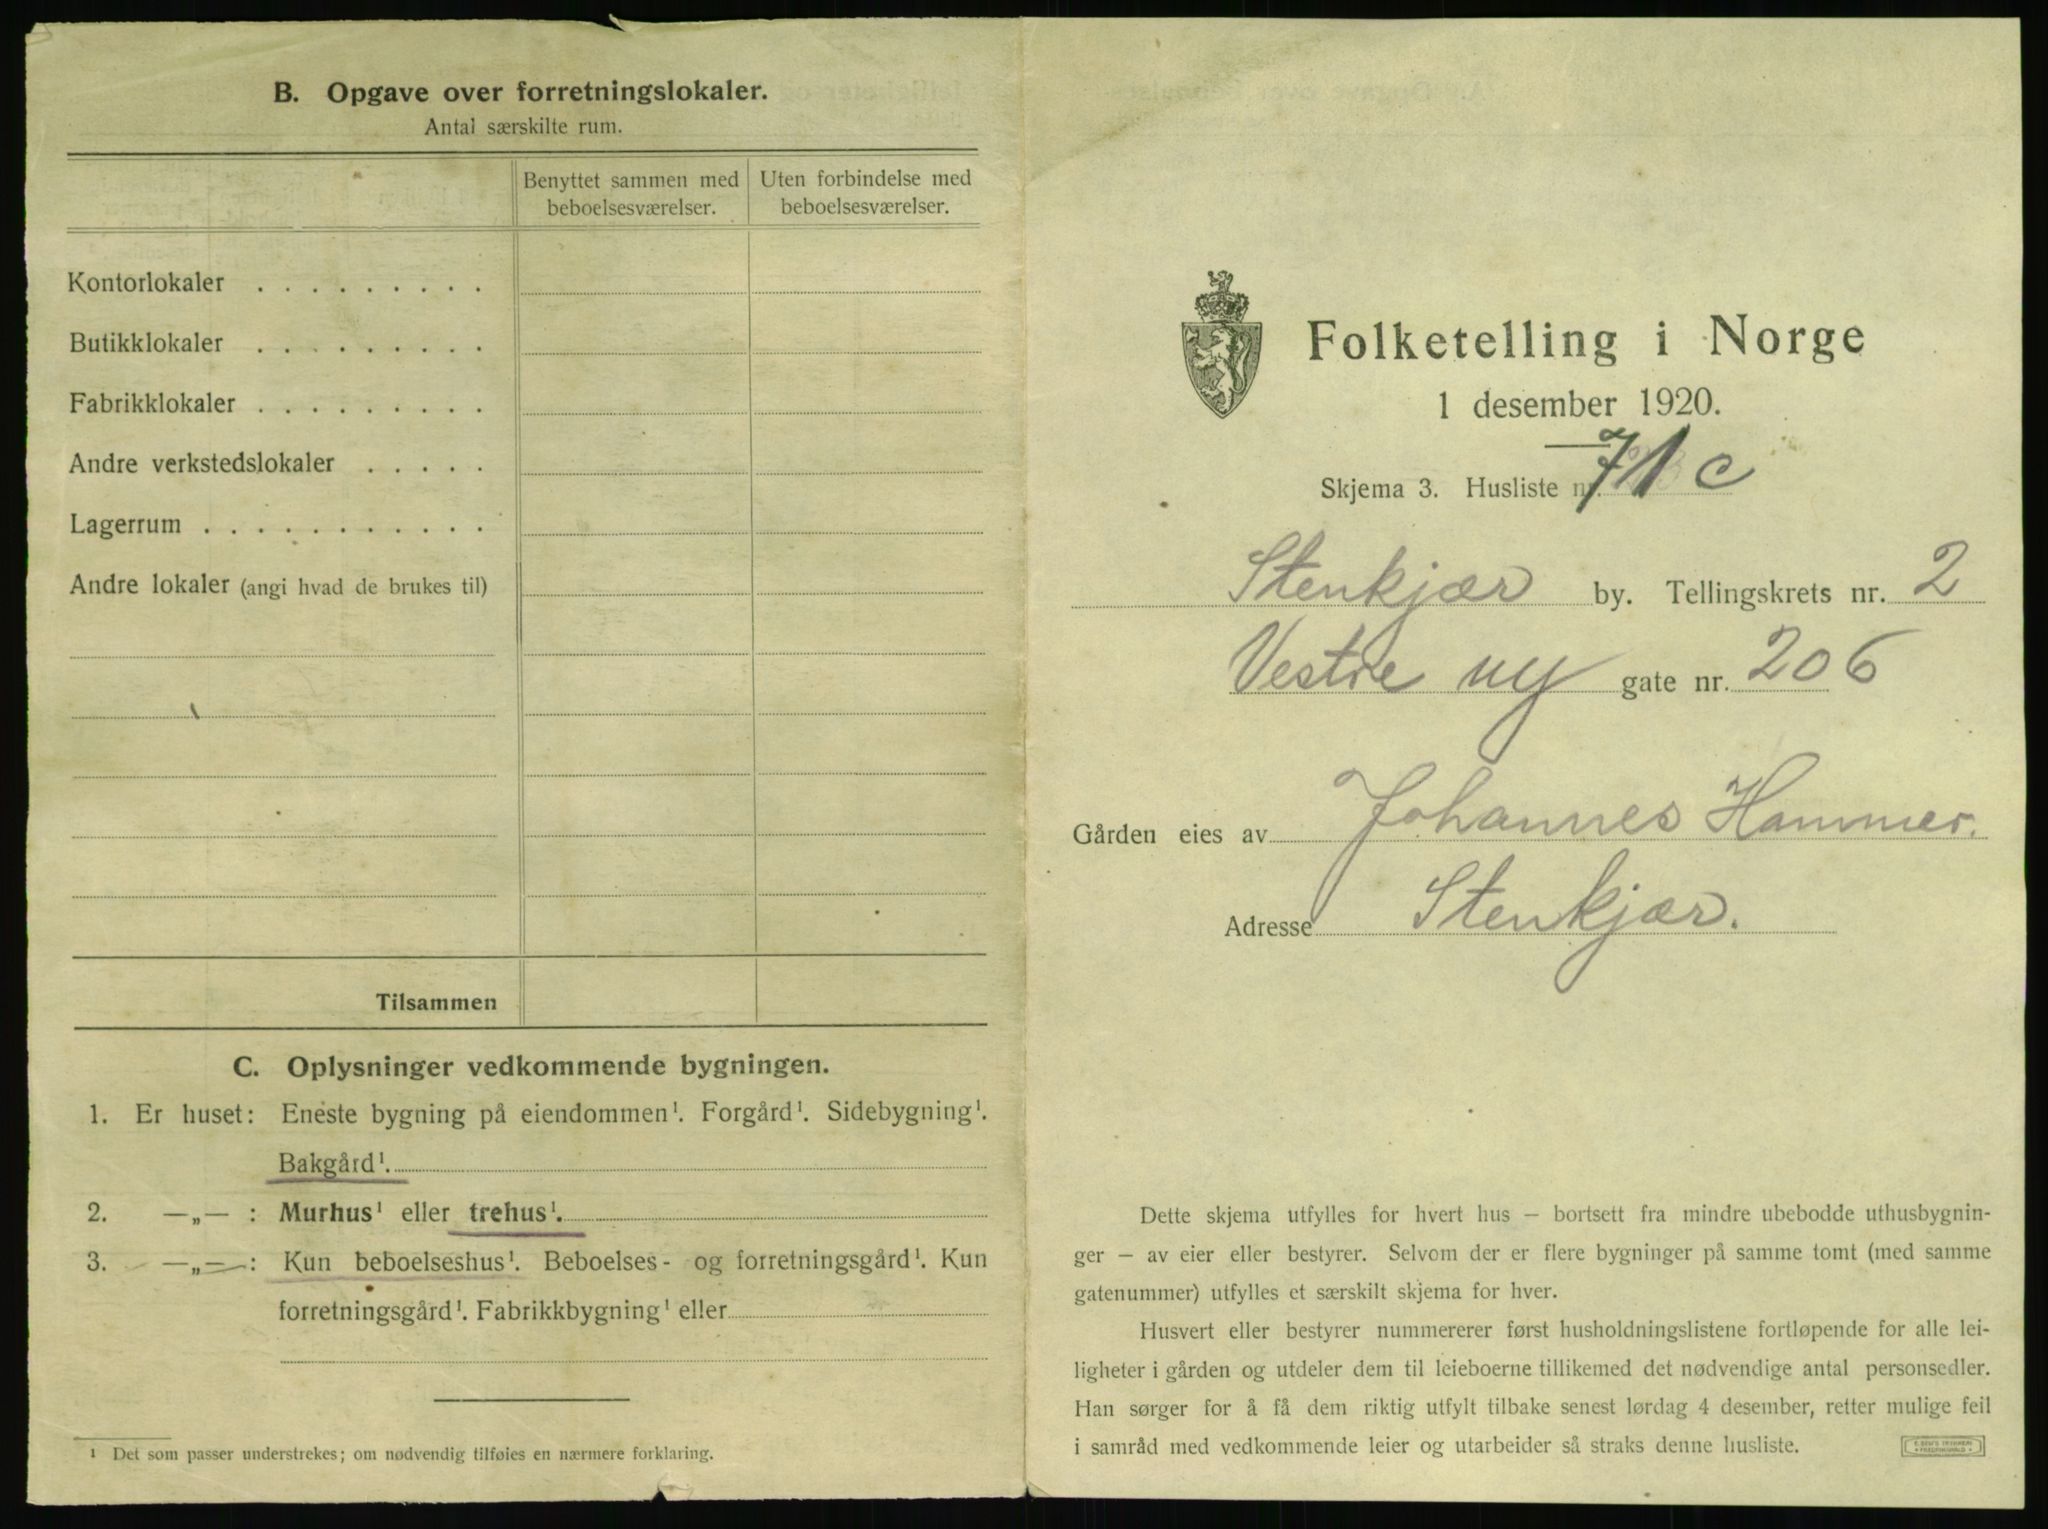 B. Opgave over forretningslokaler.
Antal særskilte rum.
Benyttet sammen med
beboelsesværelser.
Uten forbindelse med
beboelsesværelser.
Kontorlokaler . . . . . . . . .
Butikklokaler . . . . . . . . .
Fabrikklokaler . . . . . . . . .
Andre verkstedslokaler . . . . .
Lagerrum . . . . . . . . . . .
Andre lokaler (angi hvad de brukes til)
Tilsammen
C. Oplysninger vedkommende bygningen.
1. Er huset: Eneste bygning på eiendommen¹. Forgård¹. Sidebygning¹.
Bakgård¹.
2. —„— : Murhus¹ eller trehus¹.
3. —„— : Kun beboelseshus¹. Beboelses- og forretningsgård¹. Kun
forretningsgård¹. Fabrikkbygning¹ eller
¹ Det som passer understrekes; om nødvendig tilføies en nærmere forklaring.
Folketelling i Norge
1 desember 1920.
Skjema 3. Husliste nr. 71 c
Stenkjær by. Tellingskrets nr. 2
Vestre ny gate nr. 206
Gården eies av Johannes Hammer.
Adresse Stenkjær.
Dette skjema utfylles for hvert hus – bortsett fra mindre ubebodde uthusbygnin-
ger – av eier eller bestyrer. Selvom der er flere bygninger på samme tomt (med samme
gatenummer) utfylles et særskilt skjema for hver.
Husvert eller bestyrer nummererer først husholdningslistene fortløpende for alle lei-
ligheter i gården og utdeler dem til leieboerne tillikemed det nødvendige antal personsedler.
Han sørger for å få dem riktig utfylt tilbake senest lørdag 4 desember, retter mulige feil
i samråd med vedkommende leier og utarbeider så straks denne husliste.